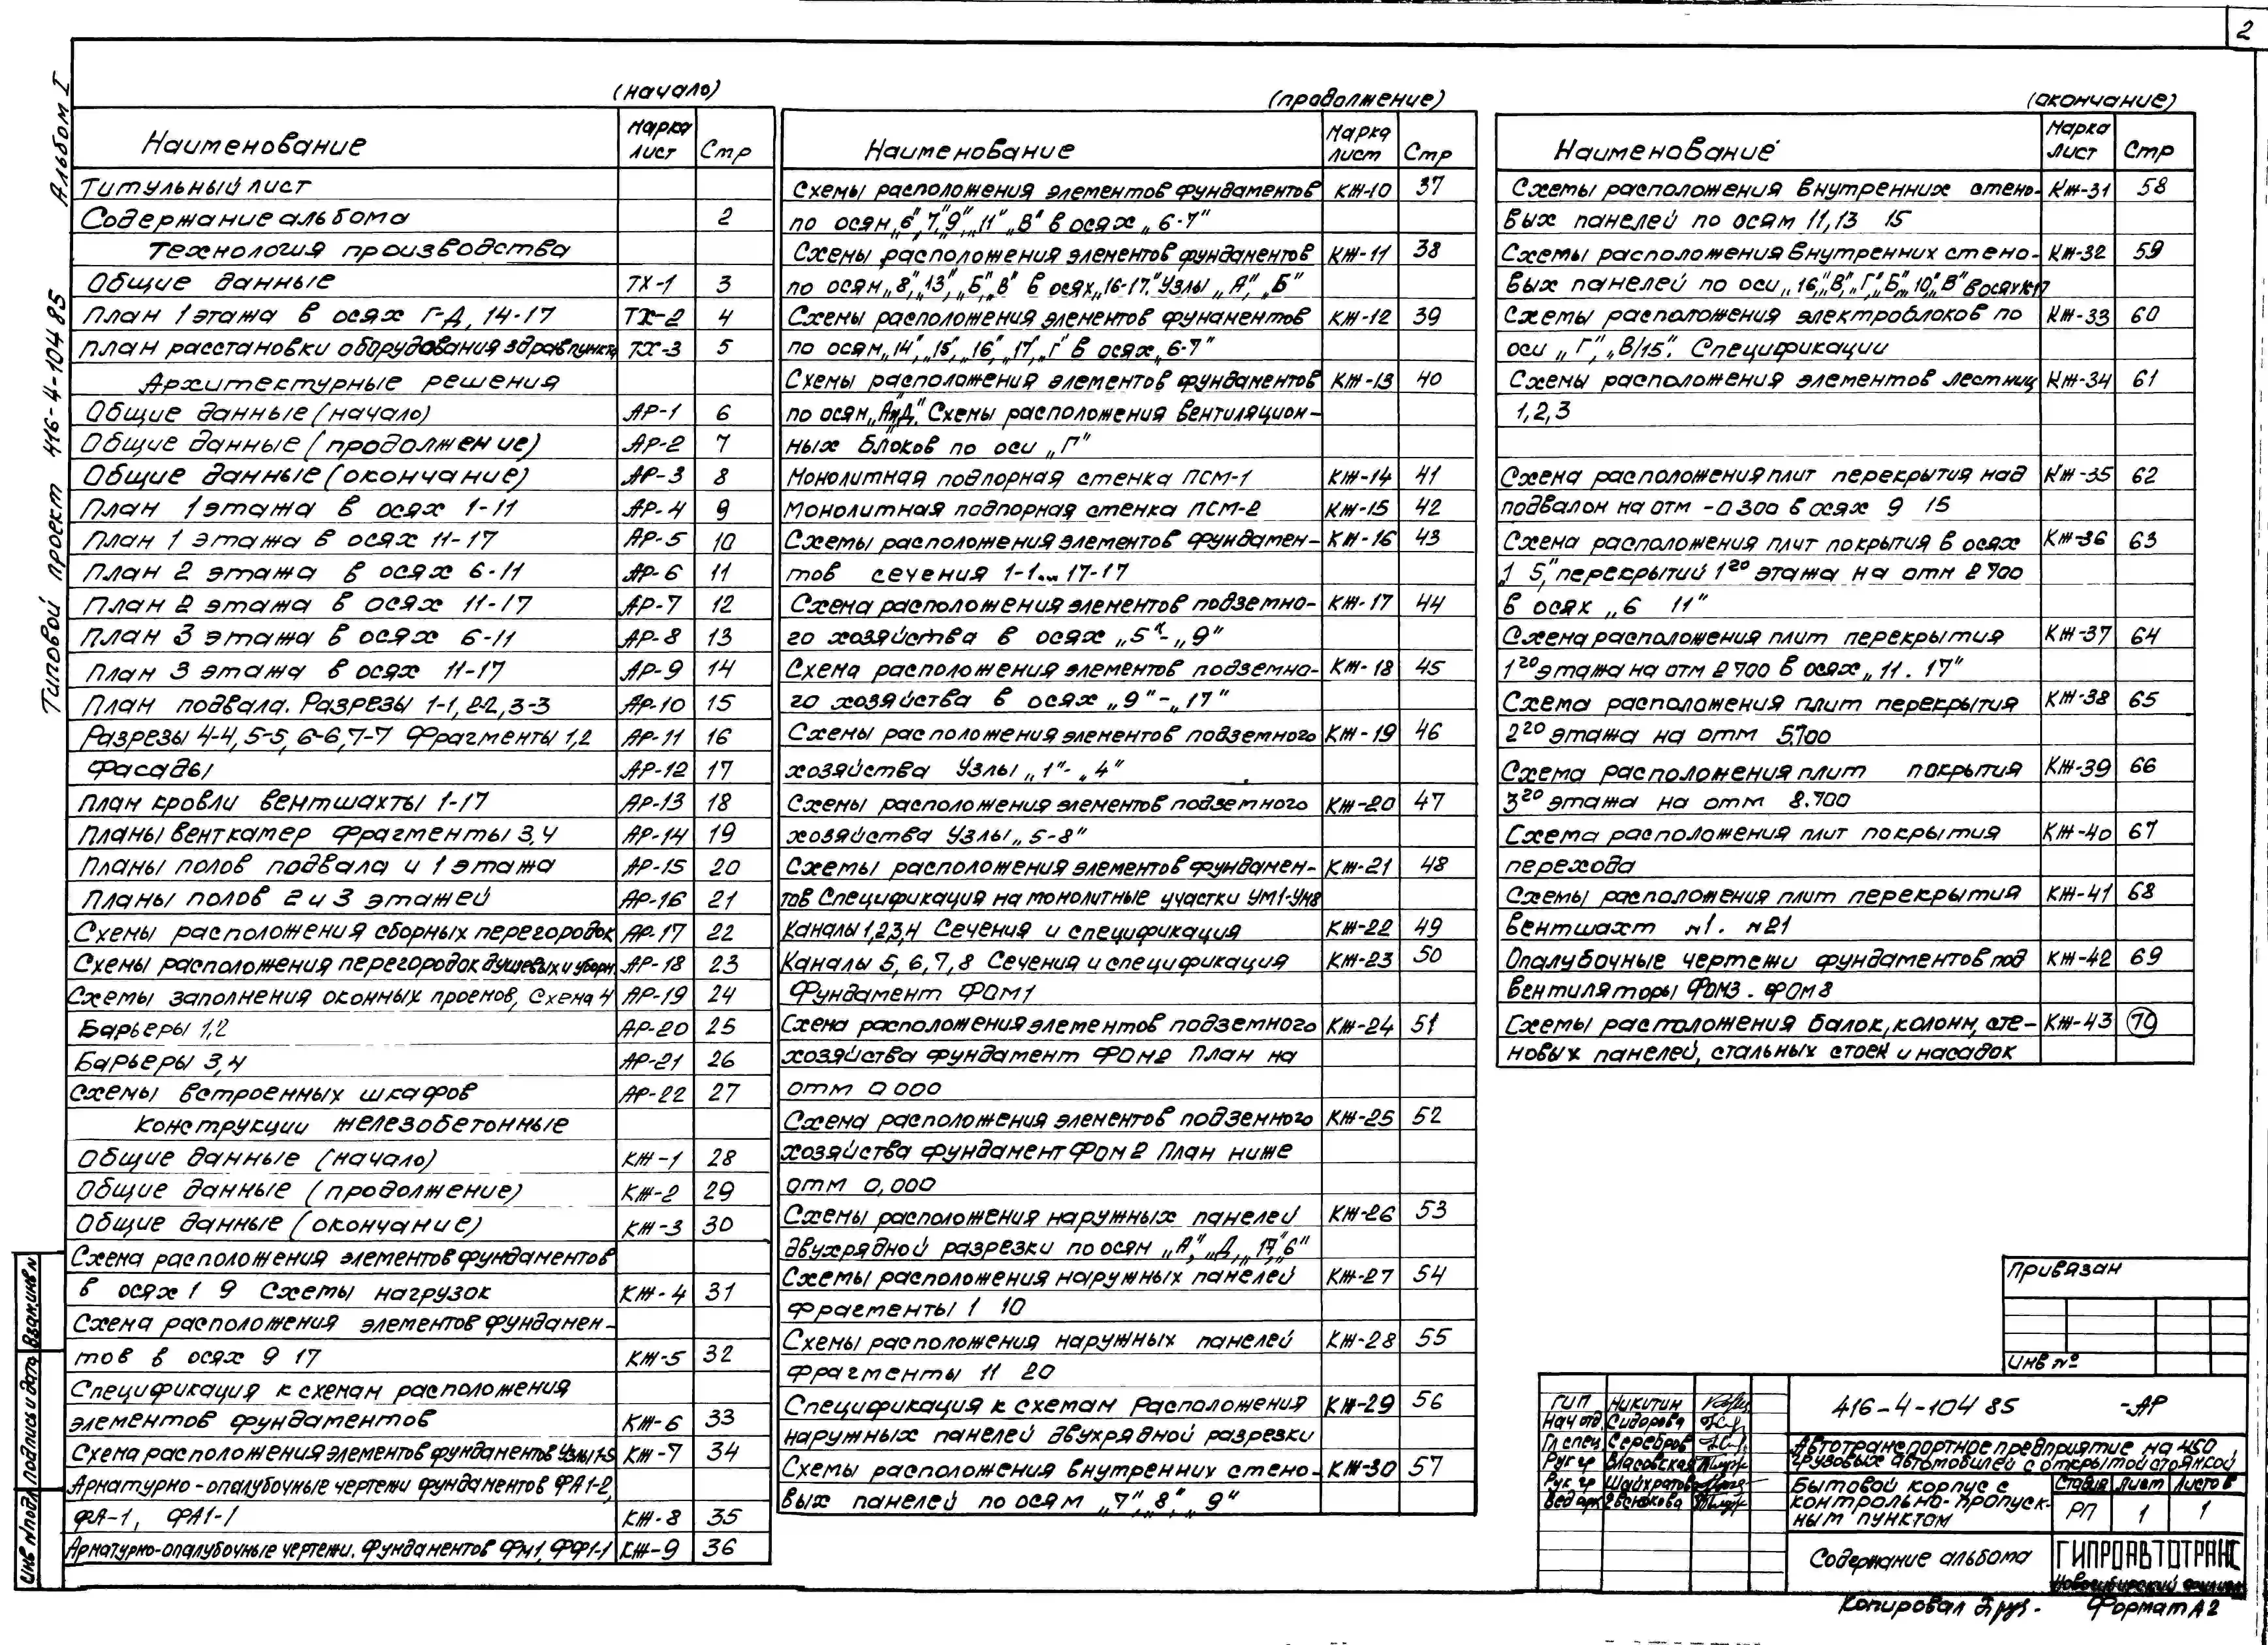 2
Типовой проект 416-4-104 85 Альбом I
(начало)
Наименование Марка лист Стр
Титульный лист
Содержание альбома 2
Технология производства
Общие данные ТХ-1 3
План 1 этажа в осях Г-Д, 14-17 ТХ-2 4
План расстановки оборудования здравпункта ТХ-3 5
Архитектурные решения
Общие данные (начало) АР-1 6
Общие данные (продолжение) АР-2 7
Общие данные (окончание) АР-3 8
План 1 этажа в осях 1-11 АР-4 9
План 1 этажа в осях 11-17 АР-5 10
План 2 этажа в осях 6-11 АР-6 11
План 2 этажа в осях 11-17 АР-7 12
План 3 этажа в осях 6-11 АР-8 13
План 3 этажа в осях 11-17 АР-9 14
План подвала. Разрезы 1-1, 2-2, 3-3 АР-10 15
Разрезы 4-4, 5-5, 6-6, 7-7 Фрагменты 1,2 АР-11 16
Фасады АР-12 17
План кровли вентшахты 1-17 АР-13 18
Планы венткамер Фрагменты 3,4 АР-14 19
Планы полов подвала и 1 этажа АР-15 20
Планы полов 2 и 3 этажей АР-16 21
Схемы расположения сборных перегородок АР-17 22
Схемы расположения перегородок душевых и уборн. АР-18 23
Схемы заполнения оконных проемов, Схема 4 АР-19 24
Барьеры 1,2 АР-20 25
Барьеры 3,4 АР-21 26
Схемы встроенных шкафов АР-22 27
Конструкции железобетонные
Общие данные (начало) КЖ-1 28
Общие данные (продолжение) КЖ-2 29
Общие данные (окончание) КЖ-3 30
Схема расположения элементов фундаментов
в осях 1 9 Схемы нагрузок КЖ-4 31
Схема расположения элементов фундамен-
тов в осях 9 17 КЖ-5 32
Спецификация к схемам расположения
элементов фундаментов КЖ-6 33
Схема расположения элементов фундаментов Узлы 1-5 КЖ-7 34
Арматурно-опалубочные чертежи фундаментов ФА1-2,
ФА-1, ФА1-1 КЖ-8 35
Арматурно-опалубочные чертежи. Фундаментов ФМ1, ФФ1-1 КЖ-9 36
(продолжение)
Наименование Марка лист Стр
Схемы расположения элементов фундаментов КЖ-10 37
по осям „6", 7", „9", „11" „В" в осях „6-7"
Схемы расположения элементов фундаментов КЖ-11 38
по осям „8", „13", „Б", „В" в осях „16-17." Узлы „А", „Б"
Схемы расположения элементов фунаментов КЖ-12 39
по осям „14", „15", „16", „17", „Г" в осях „6-7"
Схемы расположения элементов фундаментов КЖ-13 40
по осям „А"и„Д." Схемы расположения вентиляцион-
ных блоков по оси „Г"
Монолитная подпорная стенка ПСМ-1 КЖ-14 41
Монолитная подпорная стенка ПСМ-2 КЖ-15 42
Схемы расположения элементов фундамен- КЖ-16 43
тов сечения 1-1... 17-17
Схема расположения элементов подземно- КЖ-17 44
го хозяйства в осях „5"-„9"
Схема расположения элементов подземно- КЖ-18 45
го хозяйства в осях „9"-„17"
Схемы расположения элементов подземного КЖ-19 46
хозяйства Узлы „1"-„4"
Схемы расположения элементов подземного КЖ-20 47
хозяйства Узлы „5-8"
Схемы расположения элементов фундамен- КЖ-21 48
тов Спецификация на монолитные участки УМ1-УМ8
Каналы 1,2,3,4 Сечения и спецификация КЖ-22 49
Каналы 5, 6, 7, 8 Сечения и спецификация КЖ-23 50
Фундамент ФОМ1
Схема расположения элементов подземного КЖ-24 51
хозяйства фундамент ФОМ2 План на
отм 0 000
Схема расположения элементов подземного КЖ-25 52
хозяйства фундамент ФОМ2 План ниже
отм 0,000
Схемы расположения наружных панелей КЖ-26 53
двухрядной разрезки по осям „А", „Д", „17", „6"
Схемы расположения наружных панелей КЖ-27 54
фрагменты 1 10
Схемы расположения наружных панелей КЖ-28 55
фрагменты 11 20
Спецификация к схемам Расположения КЖ-29 56
наружных панелей двухрядной разрезки
Схемы расположения внутренних стено- КЖ-30 57
вых панелей по осям „7", „8", „9"
(окончание)
Наименование Марка Лист Стр
Схемы расположения внутренних стено- КЖ-31 58
вых панелей по осям 11,13 15
Схемы расположения внутренних стено- КЖ-32 59
вых панелей по оси „16", „В", „Г", „Б", „10", „В" в осях 1-17
Схемы расположения электроблоков по КЖ-33 60
оси „Г", „В/15". Спецификации
Схемы расположения элементов лестниц КЖ-34 61
1,2,3
Схема расположения плит перекрытия над КЖ-35 62
подвалом на отм -0 300 в осях 9 15
Схема расположения плит покрытия в осях КЖ-36 63
„1 5," перекрытий 1го этажа на отм 2 700
в осях „6 11"
Схема расположения плит перекрытия КЖ-37 64
1го этажа на отм 2 700 в осях „11. 17"
Схема расположения плит перекрытия КЖ-38 65
2го этажа на отм 5.700
Схема расположения плит покрытия КЖ-39 66
3го этажа на отм 8.700
Схема расположения плит покрытия КЖ-40 67
перехода
Схемы расположения плит перекрытия КЖ-41 68
вентшахт №1. №21
Опалубочные чертежи фундаментов под КЖ-42 69
вентиляторы ФОМ3. ФОМ8
Схемы расположения балок, колонн, сте- КЖ-43 70
новых панелей, стальных стоек и насадок
Привязан
Инв №
ГИП Никитин
Нач отд. Сидорова
Гл спец Серебров
Рук гр Власовская
Рук гр Шайхратов
Вед арх
416-4-104 85 -АР
Автотранспортное предприятие на 450
грузовых автомобилей с открытой стоянкой
Бытовой корпус с
контрольно-пропуск-
ным пунктом
Стадия Лист Листов
РП 1 1
Содержание альбома
ГИПРОАВТОТРАНС
Новосибирский филиал
Копировал Формат А2
Взам.инв N
Подпись и дата
Инв N подл